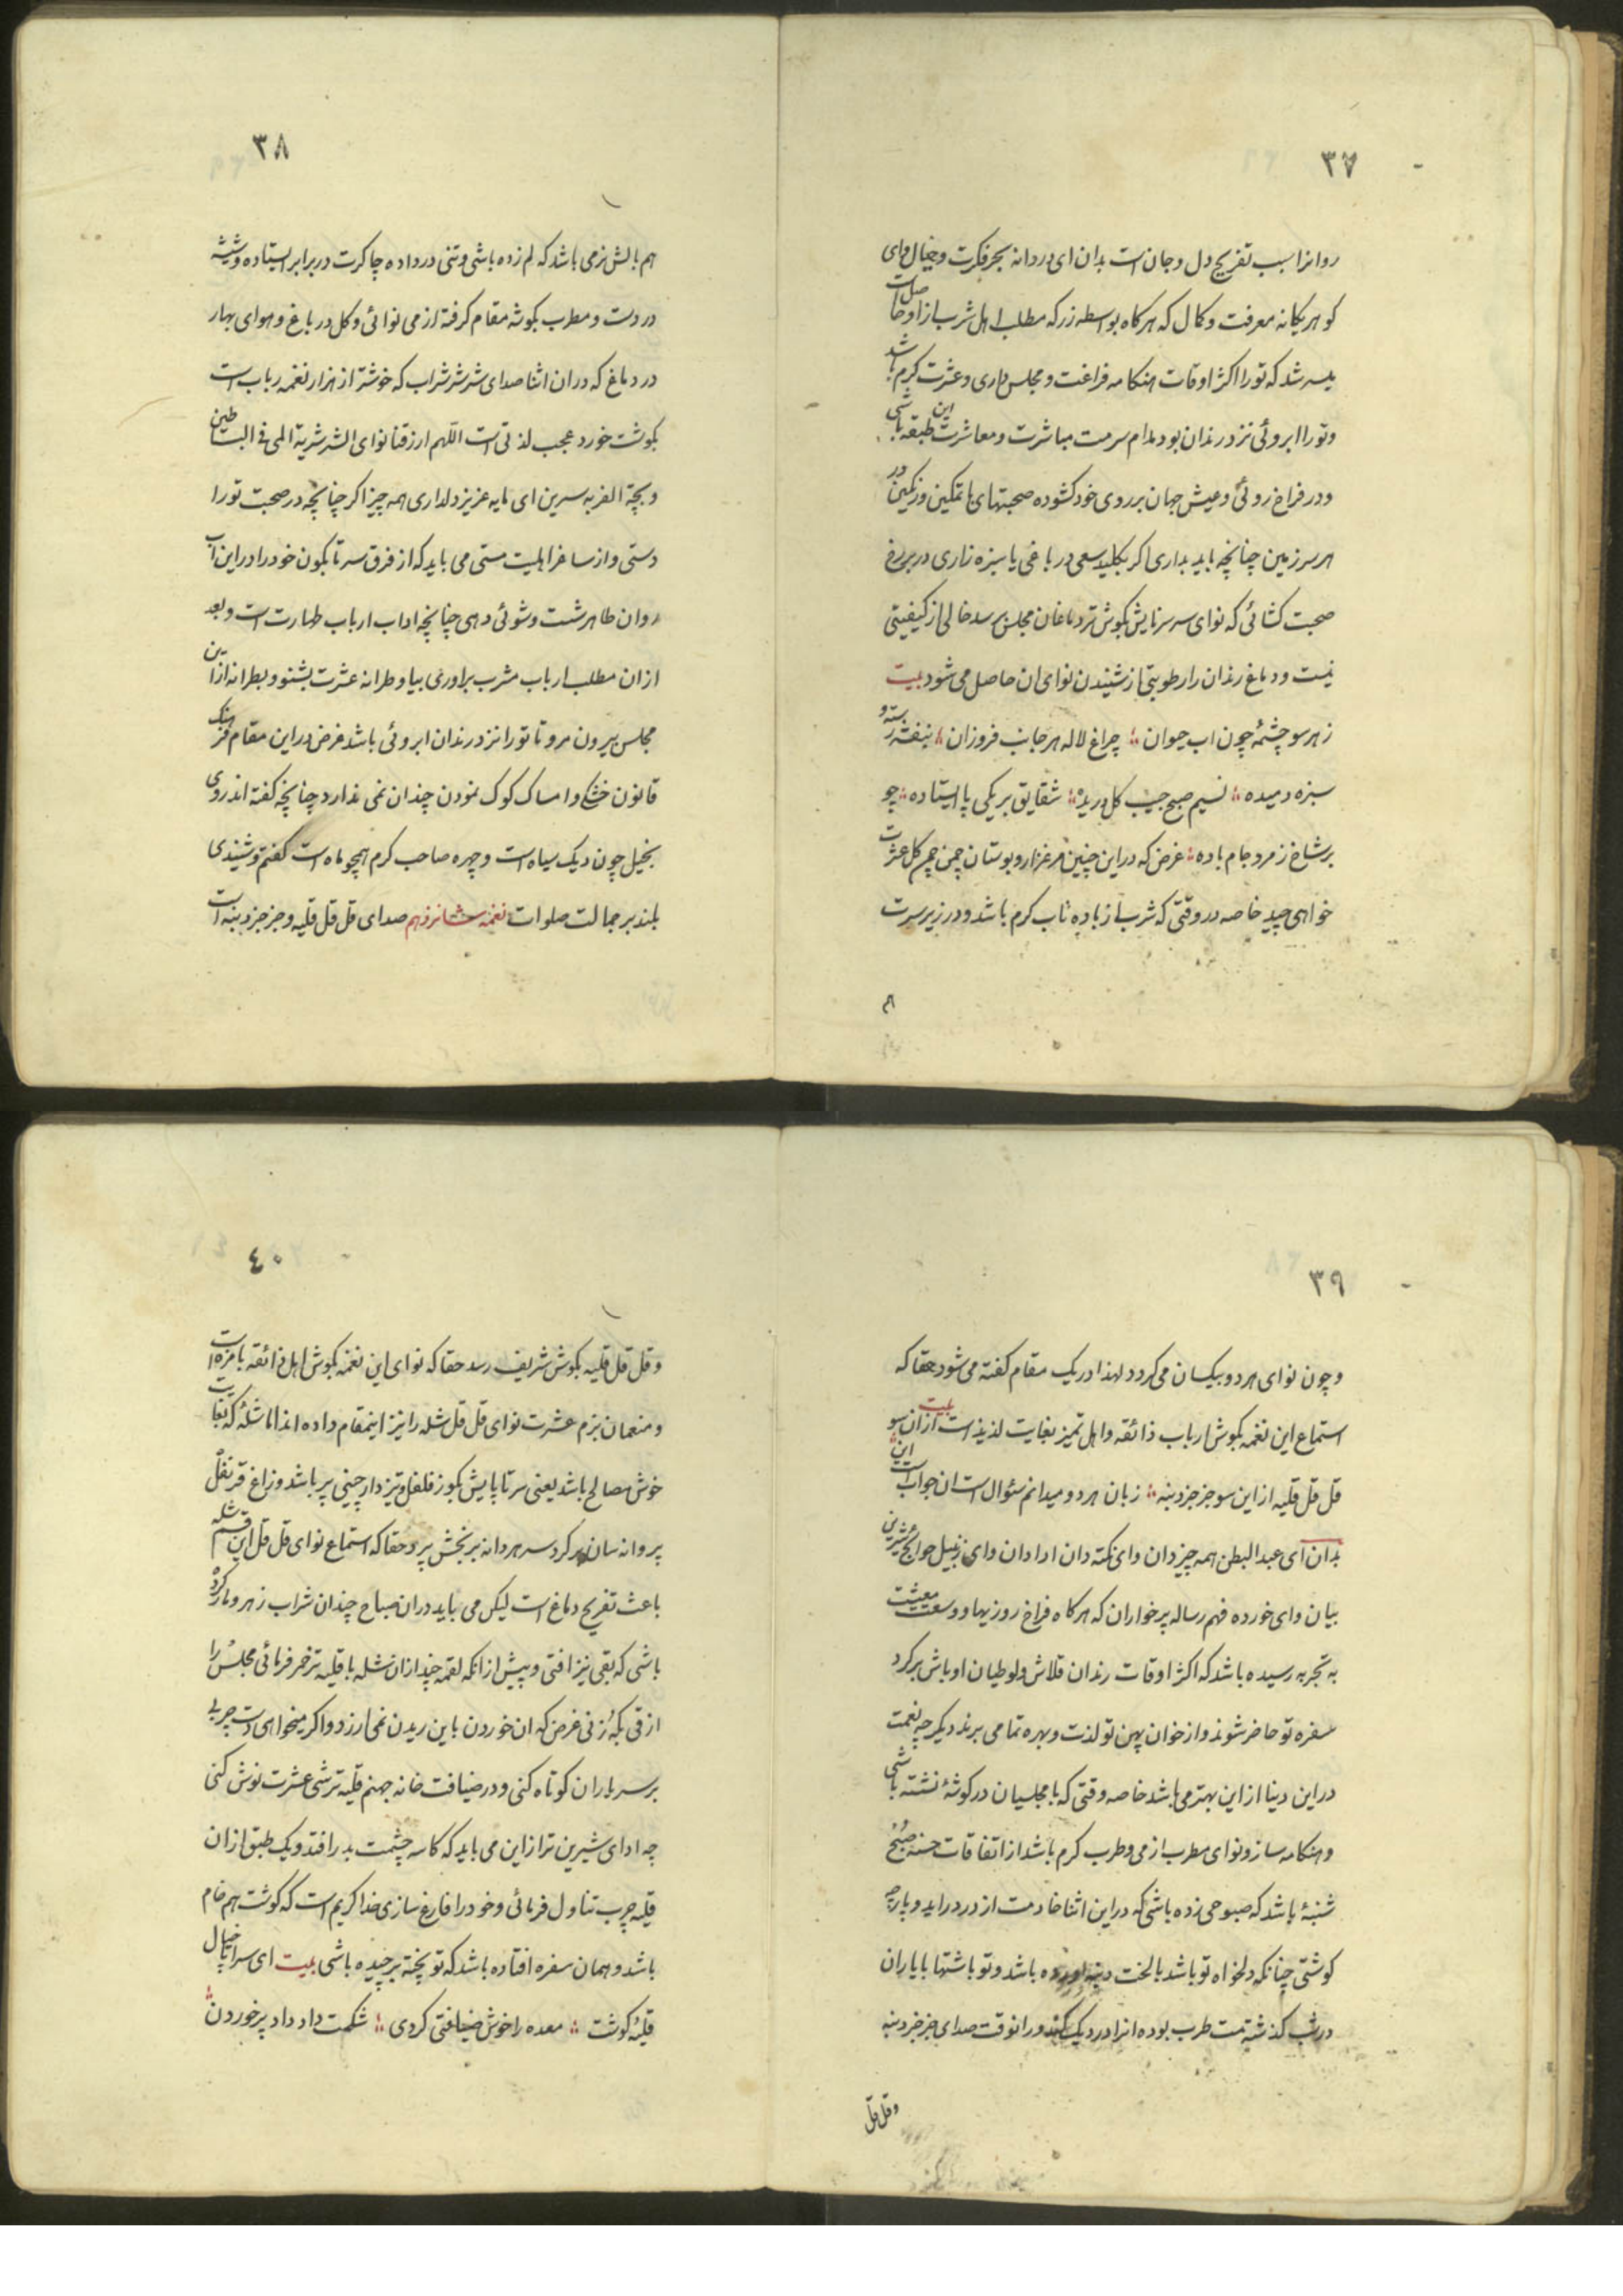 ۳۷
روانرا سبب تفریح دل و جان است بدان ای دردانه بحر فکرت و خیال وای
کوهر یکانه معرفت و کمال که هرکاه بواسطه زر که مطلب اهل شرب از او حاصل است
میسر شد که تو را اکثر اوقات هنکامه فراغت و مجلس داری و عشرت کرم باشد
و تو را ابروئی نزد رندان بود مدام سرمست مباشرت و معاشرت این طبقه باشی
و در فراخ روئی و عیش جهان بر روی خود کشوده صحبتهای با تمکین و رنکین در
هر سرزمین چنانچه باید بداری اکر بکلید سعی در باغی یا سبزه زاری در بر رخ
صحبت کشائی که نوای سرسرنایش بکوش تردماغان مجلس برسد خالی از کیفیتی
نیست و دماغ رندان را رطوبتی از شنیدن نوای ان حاصل می شود بیت
ز هر سو چشمهٔ چون اب حیوان ؛ چراغ لاله هر جانب فروزان ؛ بنفشه رسته و
سبزه دمیده ؛ نسیم صبح جیب کل دریده ؛ شقایق بر یکی پا ایستاده ؛ چو
بر شاخ زمرد جام باده ؛ غرض که در این چنین مرغزار و بوستان چمن چمن کل عشرت
خواهی چید خاصه در وقتی که شرب از باده ناب کرم باشد و در زیر سرت
هم
۳۸
هم بالش نرمی باشد که لم زده باشی و تنی در داده چاکرت در برابر ایستاده و شیشه
در دست و مطرب بکوشه مقام کرفته از می نوائی و کل در باغ و هوای بهار
در دماغ که در ان اثنا صدای شرشر شراب که خوشتر از هزار نغمه رباب است
بکوشت خورد عجب لذتی است اللهم ارزقنا نوای الشرشریة المی فی البساطین
و بچة الفربه سرین ای مایه عزیز دلداری همه چیز اکر چنانچه در صحبت تو را
دستی و از ساغر اهلیت مستی می باید که از فرق سر تا بکون خود را در این آب
روان طاهر شست و شوئی دهی چنانچه اداب ارباب طهارت است و بعد
از ان مطلب ارباب مشرب براوری بیا و طرانه عشرت بشنو و بطرانه از این
مجلس بیرون مرو تا تو را نزد رندان ابروئی باشد غرض در این مقام فرهنک
قانون خشکی و امساک کوک نمودن چندان نمی ندارد چنانچه کفته اند روی
بخیل چون دیک سیاه است و چهره صاحب کرم همچو ماه است کفتم و شنیدی
بلند بر جمالت صلوات نغمه شانزدهم صدای قل قل قلیه و جزجز دنبه است
۳۹
و چون نوای هر دو بیکسان می کردد لهذا در یک مقام کفته می شود حقا که
استماع این نغمه بکوش ارباب ذائقه و اهل تمیز بغایت لذیذ است بیت از ان سو
قل قل قلیه از این سو جزجز دنبه ؛ زبان هر دو میدانم سئوال است ان جواب است این
بدان ای عبد البطن همه چیز دان و ای نکته دان ادادان و ای زنبیل حوائج شیرین
بیان و ای خورده فهم رساله پرخواران که هرکاه فراخ روزیها و وسعت معیشت
به تجربه رسیده باشد که اکثر اوقات رندان قلاش و لوطیان اوباش بر کرد
سفره تو حاضر شوند و از خوان پهن تو لذت و بهره تمامی برند دیکر چه نعمت
در این دنیا از این بهتر می باشد خاصه وقتی که با مجلسیان در کوشهٔ نشسته باشی
و هنکامه ساز و نوای مطرب از می و طرب کرم باشد از اتفاقات حسنه صبح
شنبهٔ باشد که صبوحی زده باشی که در این اثنا خادمت از در دراید و پارچه
کوشتی چنانکه دلخواه تو باشد بالخت دنبه اورده باشد و تو باشتها با یاران
در شب کذشته مست طرب بوده انرا در دیک کند در انوقت صدای جزجز دنبه
و قل قل
۴۰
و قل قل قلیه بکوش شریف رسد حقا که نوای این نغمه بکوش اهل ذائقه بامزه است
و منعمان بزم عشرت نوای قل قل شله را نیز اینمقام داده اند اما شلهٔ که بغایت
خوش مصالح باشد یعنی سر تا پایش بکوز فلفل و تیز دارچینی پر باشد و زاغ قرنفل
پروانه سان بر کرد سر هر دانه برنجش پرد حقا که استماع نوای قل قل این قسم شله
باعث تفریح دماغ است لیکن می باید در ان صباح چندان شراب زهر و مار کرده
باشی که بقی نیز افتی و پیش از انکه لقمه چند از ان شله با قلیه ترخر فرمائی مجلس را
از قی بکه زنی غرض که ان خوردن باین ریدن نمی ارزد و اکر میخواهی دست چربی
بر سر یاران کوتاه کنی و در ضیافت خانه جهنم قلیه ترشی عشرت نوش کنی
چه ادای شیرین تر از این می باید که کاسه چشمت بدر افتد و یک طبق از ان
قلیه چرب تناول فرمائی و خود را فارغ سازی خدا کریم است که کوشت هم خام
باشد و همان سفره افتاده باشد که تو پخته بر چیده باشی بیت ای سراپا خیال
قلیهٔ کوشت ؛ معده را خوش ضیافتی کردی ؛ شکمت داد داد پر خوردن ؛